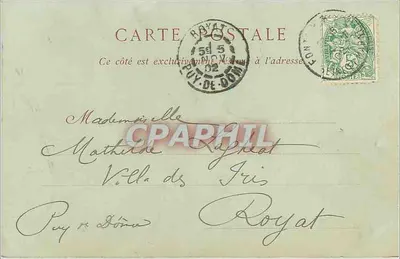 CARTE POSTALE
Ce côté est exclusivement réservé à l'adresse
ROYAT
5E 5
02
PUY-DE-DOME
Mademoiselle
CPAPHIL
Mathilde
Villa des Iris
Royat
Puy de Dôme